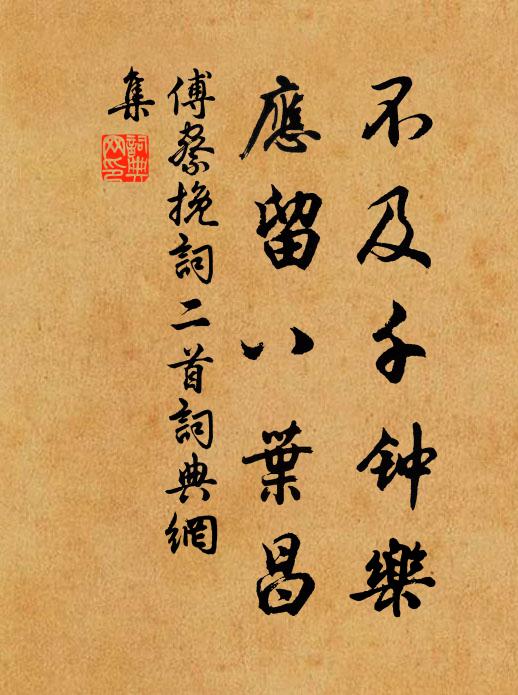 不及千钟樂
應留八葉昌
傅察挽詞二首詞典網
集
詞典网印